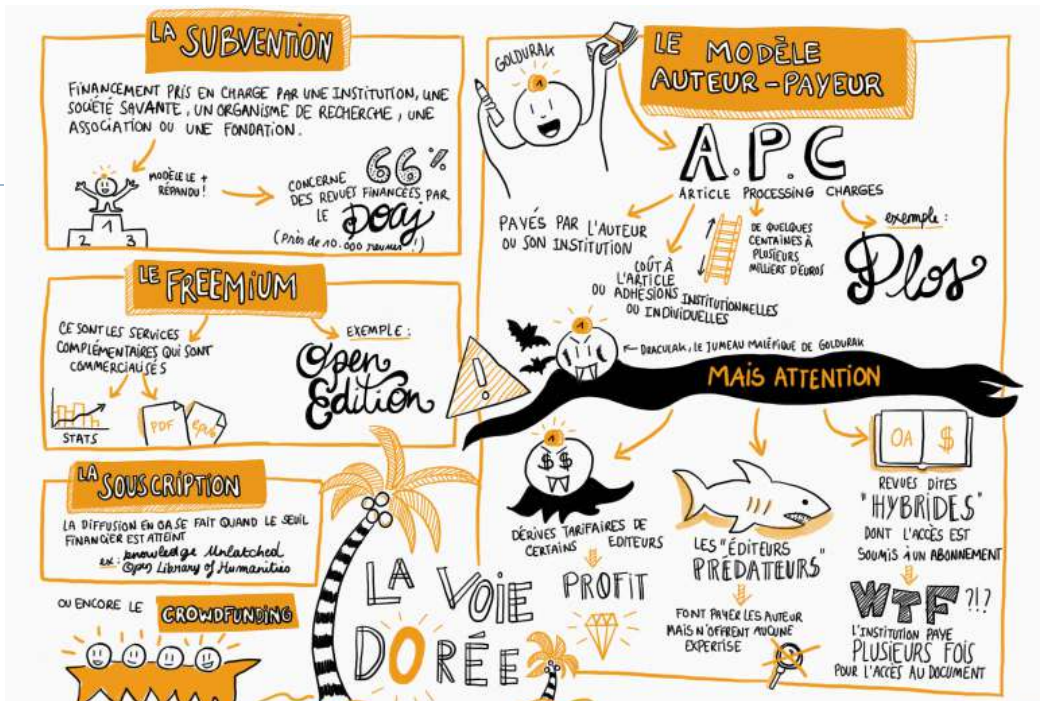 LA SUBVENTION
FINANCEMENT PRIS EN CHARGE PAR UNE INSTITUTION, UNE
SOCIÉTÉ SAVANTE, UN ORGANISME DE RECHERCHE, UNE
ASSOCIATION OU UNE FONDATION.
MODÈLE LE +
RÉPANDU !
1
2 3
CONCERNE 66%
DES REVUES FINANCÉES PAR
LE DOAJ
(Près de 10.000 revues !)
LE FREEMIUM
CE SONT LES SERVICES
COMPLÉMENTAIRES QUI SONT
COMMERCIALISÉS
STATS
PDF
epub
EXEMPLE :
Open
Edition
LA SOUSCRIPTION
LA DIFFUSION EN OA SE FAIT QUAND LE SEUIL
FINANCIER EST ATTEINT
ex : Knowledge Unlatched
Open Library of Humanities
OU ENCORE LE CROWDFUNDING
LA VOIE
DORÉE
GOLDURAK
1
LE MODÈLE
AUTEUR-PAYEUR
A.P.C
ARTICLE PROCESSING CHARGES
PAYÉS PAR L'AUTEUR
OU SON INSTITUTION
COÛT À
L'ARTICLE
OU ADHÉSIONS INSTITUTIONNELLES
OU INDIVIDUELLES
DE QUELQUES
CENTAINES À
PLUSIEURS
MILLIERS D'EUROS
exemple :
Plos
!
1
DRACULAK, LE JUMEAU MALÉFIQUE DE GOLDURAK
MAIS ATTENTION
1
$ $
DÉRIVES TARIFAIRES DE
CERTAINS EDITEURS
PROFIT
LES "ÉDITEURS
PRÉDATEURS"
FONT PAYER LES AUTEUR
MAIS N'OFFRENT AUCUNE
EXPERTISE
OA $
REVUES DITES
"HYBRIDES"
DONT L'ACCÈS EST
SOUMIS À UN ABONNEMENT
WTF ?!?
L'INSTITUTION PAYE
PLUSIEURS FOIS
POUR L'ACCÈS AU DOCUMENT